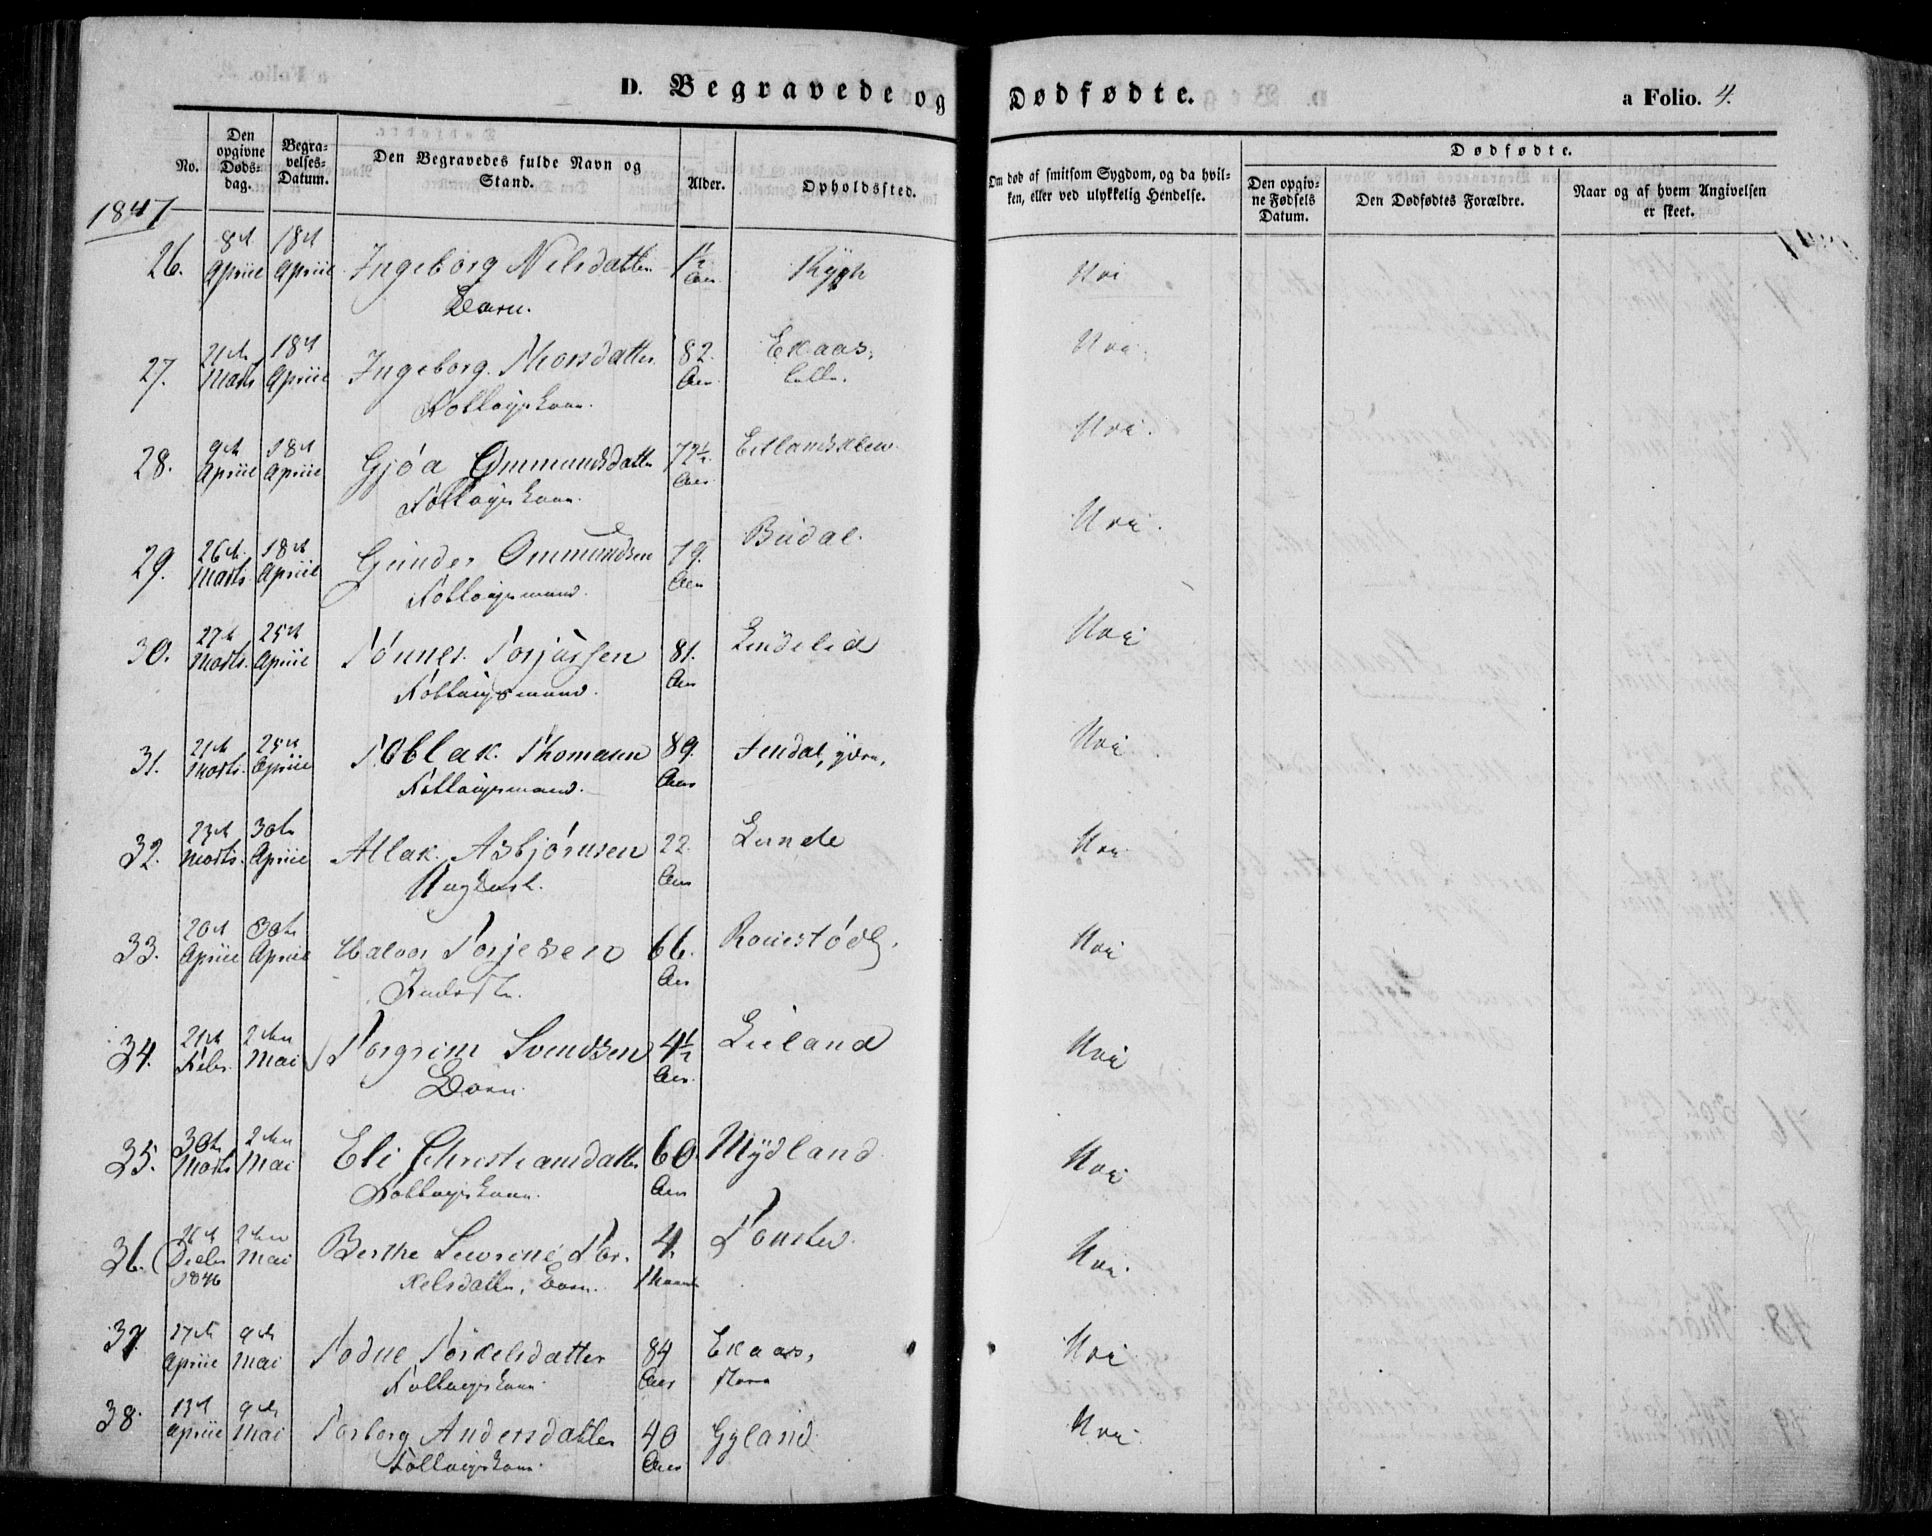 D. Begravede og Dødfødte. a Folio. 4.
No. Den opgivne Døds-dag. Begra-velses-Datum. Den Begravedes fulde Navn og Stand. Alder. Opholdssted. Om død af smitsom Sygdom, og da hvil-ken, eller ved ulykkelig Hendelse. Dødfødte.
Den opgiv-ne Fødsels Datum. Den Dødfødtes Forældre. Naar og af hvem Angivelsen er skeet.
1847
26. 8de April 18de April Ingeborg Nelsdatter 1½ Aar Rygh Nei
Barn.
27. 21de Marts 18de April Ingeborg Thorsdatter 82. Aar Ekaas, lille. Nei
Follougskone.
28. 9de April 18de April Gjøa Ommundsdatter 72½ Aar Nei.
Follougskone.
29. 26de Marts 18de April Gunder Ommundsen 79. Aar Budal. Nei.
Follougsmand.
30. 27de Marts. 25de April Tønnes Torjussen 81. Aar Lindelid Nei
Follougsmand.
31. 21de Marts. 25de April Thomasen 89. Aar Nei
Follougsmand.
32. 23de Marts. 30te April Atlak Asbjørnsen 22. Aar Lunde Nei
Ungkarl.
33. 20de April 30te April Halvor Torjesen 66. Aar Nei
34. 21de Febr. 2den Mai Torgrim Svendsen 4½ Aar Lieland Nei
Barn.
35. 30te Marts 2den Mai Eli Christiansdatter 60. Aar Mydland Nei
Follougskone.
36. Decbr 1846 2den Mai Berthe Severine Tor- 4. Maaned Tonstad Nei.
kelsdatter, Barn.
37. 17de April 9de Mai Todne Torkelsdatter 84 Aar Ekaas, store Nei
Follougskone
38. 13de April 9de Mai Torborg Andersdatter 40 Aar Gyland Nei.
Follougskone.